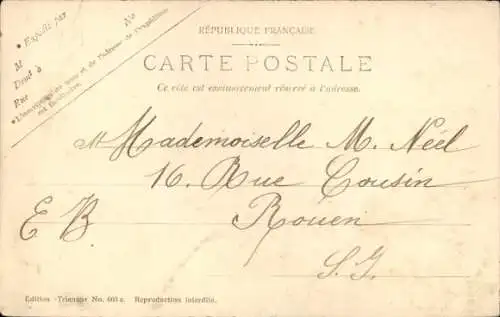 RÉPUBLIQUE FRANÇAISE
CARTE POSTALE
Ce côté est exclusivement réservé à l'adresse.
• Expédié par
M
Demt à
Rue No
• L'inscription du nom et de l'adresse de l'expéditeur
est facultative.
Mademoiselle M. Néel
16. Rue Cousin
E B Rouen
S. I.
Edition Trianque No. 603 c. Reproduction interdite.